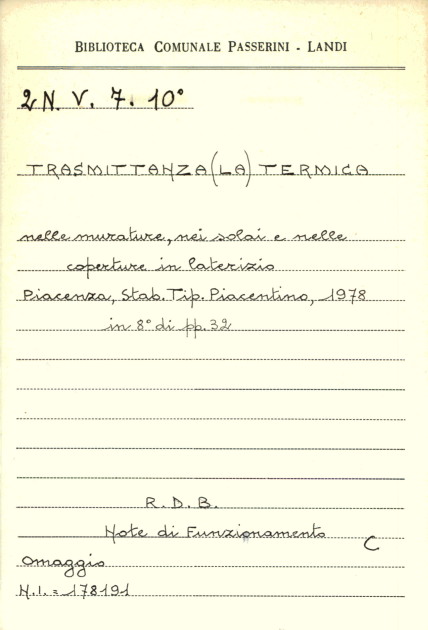 BIBLIOTECA COMUNALE PASSERINI - LANDI
2 N. V. 7. 10°
TRASMITTANZA (LA) TERMICA
nelle murature, nei solai e nelle
coperture in laterizio
Piacenza, Stab. Tip. Piacentino, 1978
in 8° di pp. 32
R. D. B.
Note di Funzionamento
C
Omaggio
N.I. = 178191